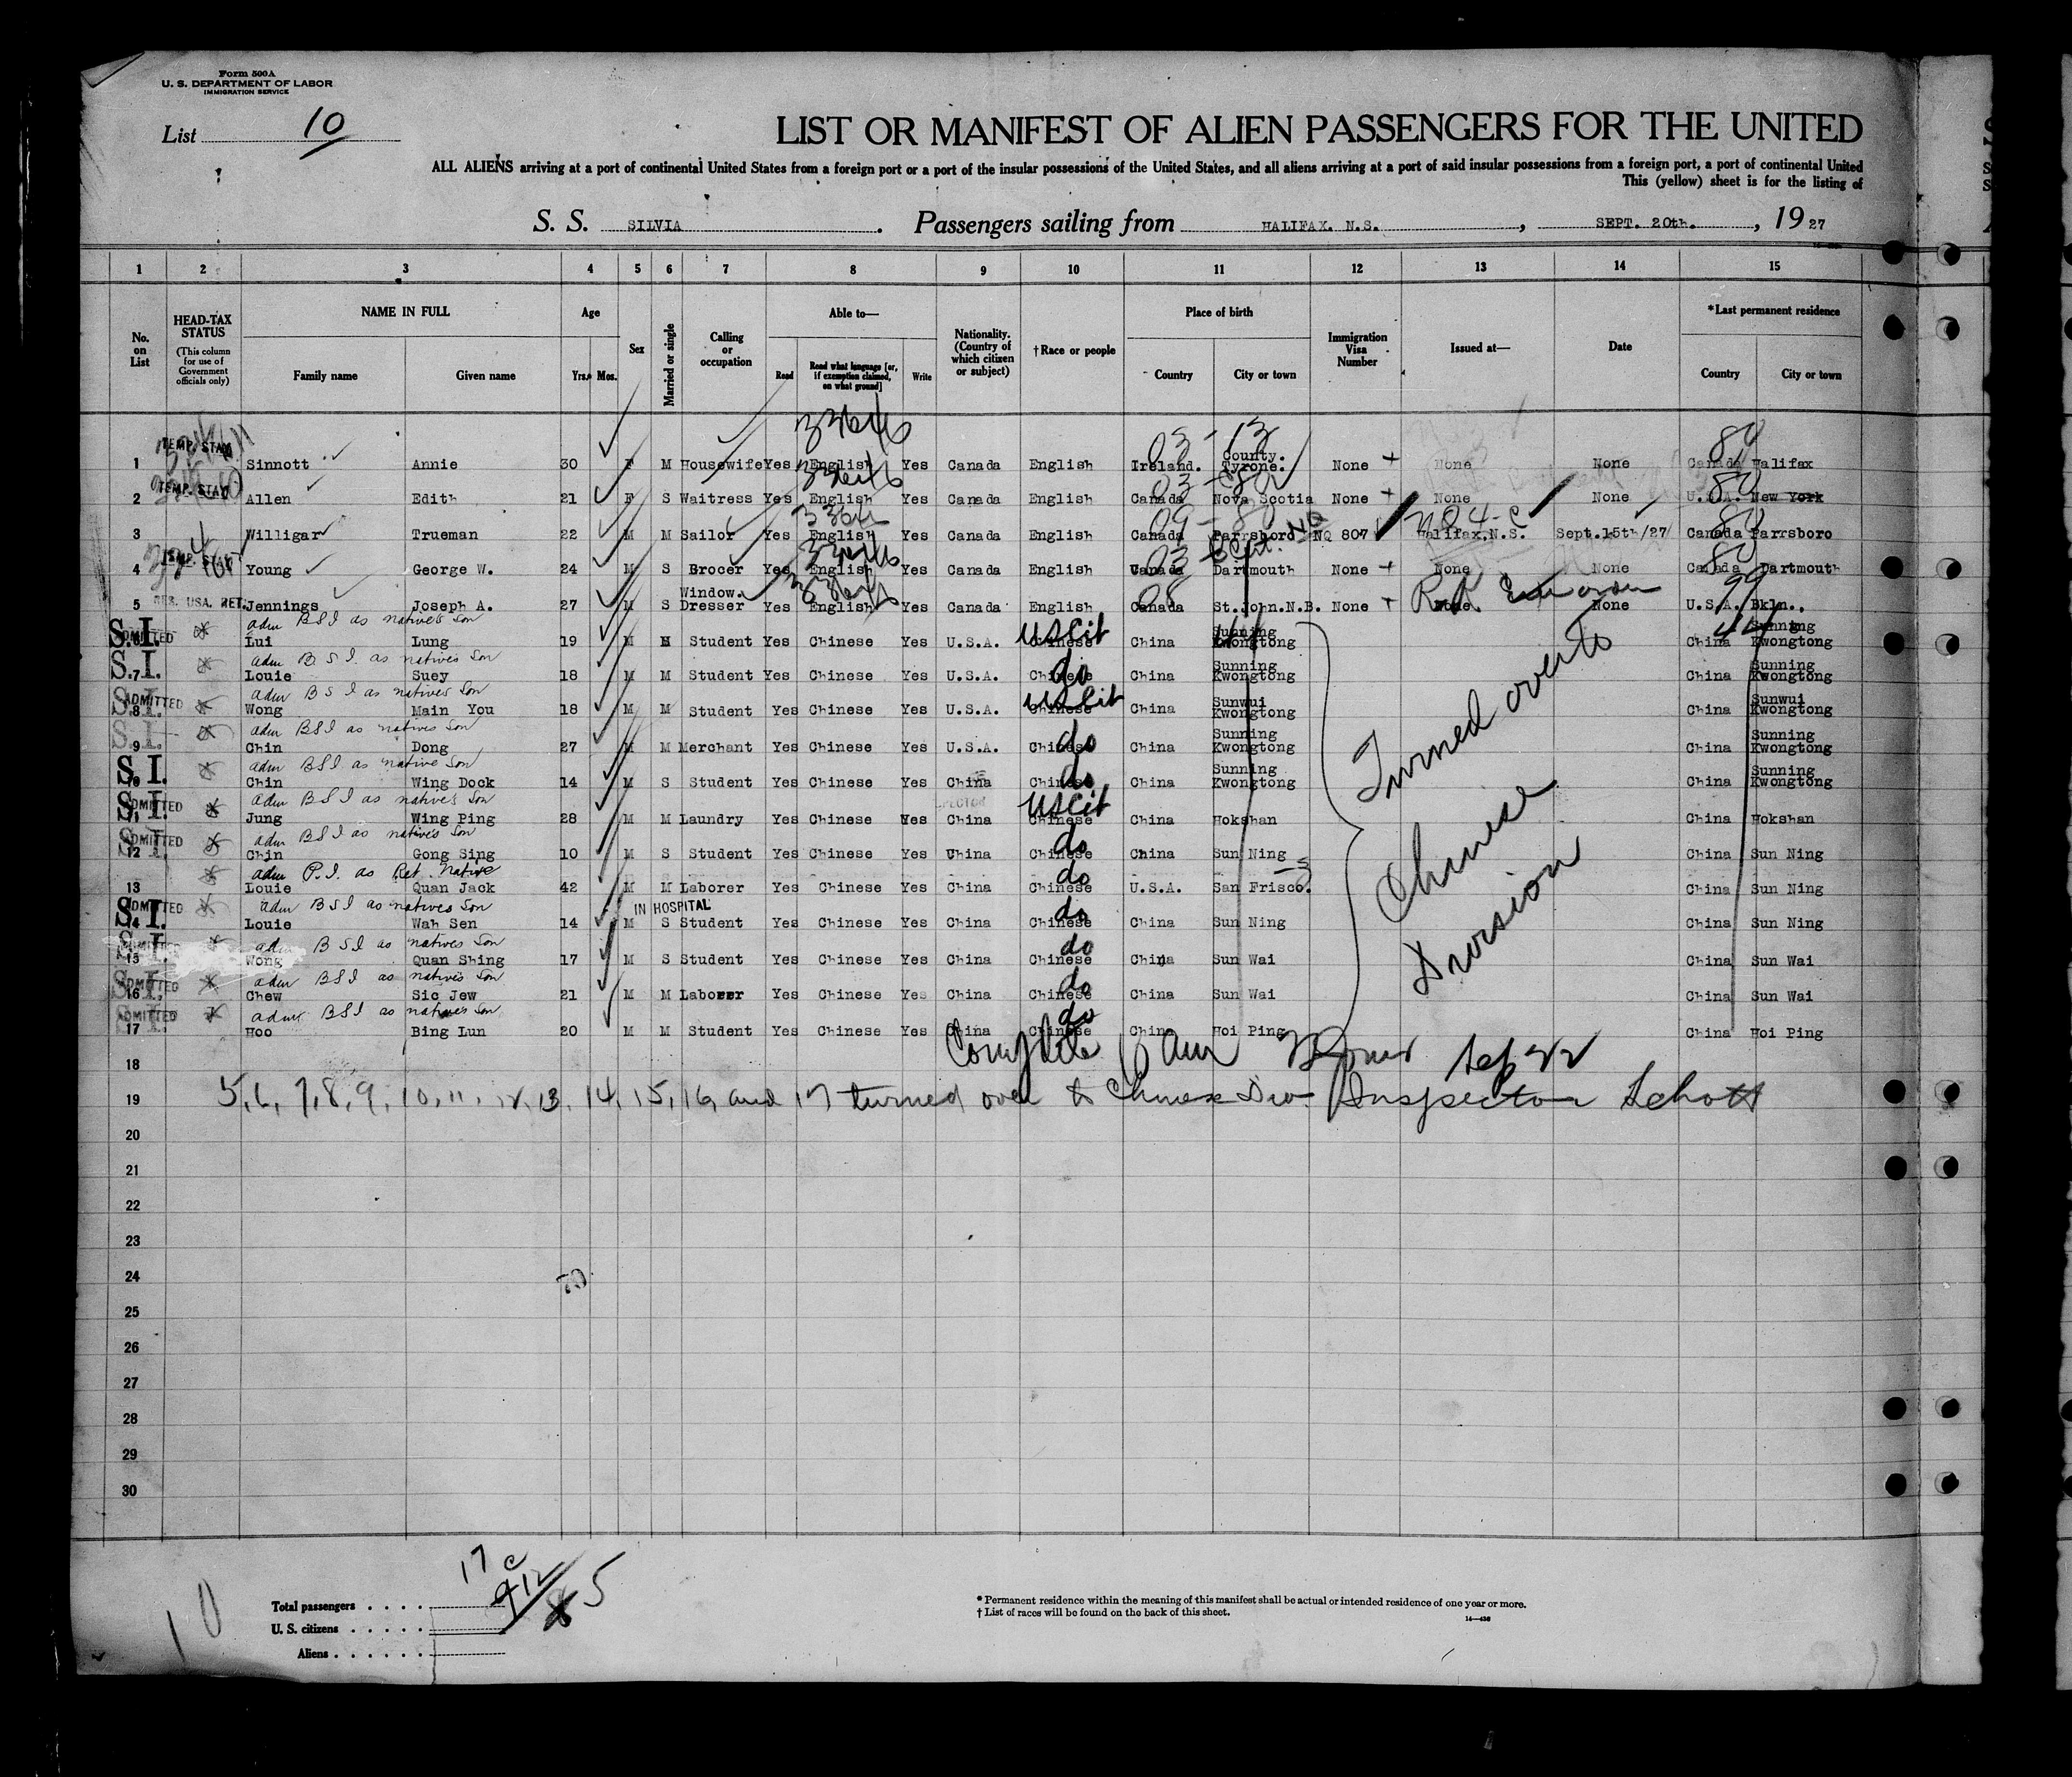 Form 500A
U. S. DEPARTMENT OF LABOR
IMMIGRATION SERVICE
List 10
LIST OR MANIFEST OF ALIEN PASSENGERS FOR THE UNITED
ALL ALIENS arriving at a port of continental United States from a foreign port or a port of the insular possessions of the United States, and all aliens arriving at a port of said insular possessions from a foreign port, a port of continental United
This (yellow) sheet is for the listing of
S. S. SILVIA . Passengers sailing from HALIFAX. N.S. , SEPT. 20th. , 19 27
1 2 3 4 5 6 7 8 9 10 11 12 13 14 15
No. on List
HEAD-TAX STATUS (This column for use of Government officials only)
NAME IN FULL Family name Given name
Age Yrs. Mos.
Sex
Married or single
Calling or occupation
Able to— Read Read what language [or, if exemption claimed, on what ground] Write
Nationality. (Country of which citizen or subject)
†Race or people
Place of birth Country City or town
Immigration Visa Number
Issued at—
Date
*Last permanent residence Country City or town
TEMP. STAY
1 Sinnott Annie 30 F M Housewife Yes English Yes Canada English Ireland. County. Tyrone. None None None Canada Halifax
TEMP. STAY
2 Allen Edith 21 F S Waitress Yes English Yes Canada English Canada Nova Scotia None None None U.S.A. New York
3 Willigar Trueman 22 M M Sailor Yes English Yes Canada English Canada Parrsboro NQ 807 Halifax,N.S. Sept.15th/27 Canada Parrsboro
TEMP. STAY
4 Young George W. 24 M S Grocer Yes English Yes Canada English Canada Dartmouth None None None Canada Dartmouth
5 RES. USA. RET. Jennings Joseph A. 27 M S Window. Dresser Yes English Yes Canada English Canada St.John.N.B. None None None U.S.A. Bkln.,
S.I. ADMITTED adm BSI as natives Son
6 Lui Lung 19 M M Student Yes Chinese Yes U.S.A. Chinese US Cit China Sunning Kwongtong China Sunning Kwongtong
S.I. adm B.S.I. as natives Son
7 Louie Suey 18 M M Student Yes Chinese Yes U.S.A. Chinese do China Sunning Kwongtong China Sunning Kwongtong
S.I. ADMITTED adm BSI as natives Son
8 Wong Main You 18 M M Student Yes Chinese Yes U.S.A. Chinese US Cit China Sunwui Kwongtong China Sunwui Kwongtong
S.I. adm BSI as natives Son
9 Chin Dong 27 M M Merchant Yes Chinese Yes U.S.A. Chinese do China Sunning Kwongtong China Sunning Kwongtong
S.I. adm BSI as native Son
10 Chin Wing Dock 14 M S Student Yes Chinese Yes China Chinese do China Sunning Kwongtong China Sunning Kwongtong
S.I. ADMITTED adm BSI as natives Son
11 Jung Wing Ping 28 M M Laundry Yes Chinese Yes China Chinese US Cit China Hokshan China Hokshan
S.I. ADMITTED adm BSI as natives Son
12 Chin Gong Sing 10 M S Student Yes Chinese Yes China Chinese do China Sun Ning China Sun Ning
adm P.I. as Ret. Native
13 Louie Quan Jack 42 M M Laborer Yes Chinese Yes China Chinese do U.S.A. San Frisco. China Sun Ning
S.I. ADMITTED adm BSI as natives Son IN HOSPITAL
14 Louie Wah Sen 14 M S Student Yes Chinese Yes China Chinese do China Sun Ning China Sun Ning
S.I. adm BSI as natives Son
15 Wong Quan Shing 17 M S Student Yes Chinese Yes China Chinese do China Sun Wai China Sun Wai
S.I. ADMITTED adm BSI as natives Son
16 Chew Sic Jew 21 M M Laborer Yes Chinese Yes China Chinese do China Sun Wai China Sun Wai
S.I. ADMITTED adm BSI as natives Son
17 Hoo Bing Lun 20 M M Student Yes Chinese Yes China Chinese do China Hoi Ping China Hoi Ping
Turned over to
Chinese
Division
18 Complete Sep 22
19 5, 6, 7, 8, 9, 10, 11, 12, 13, 14, 15, 16, and 17 turned over to Chinese Div. Inspector Schott
20
21
22
23
24
25
26
27
28
29
30
17
Total passengers . . . .
U. S. citizens . . . . .
Aliens . . . . . .
5
10
* Permanent residence within the meaning of this manifest shall be actual or intended residence of one year or more.
† List of races will be found on the back of this sheet.
14—436